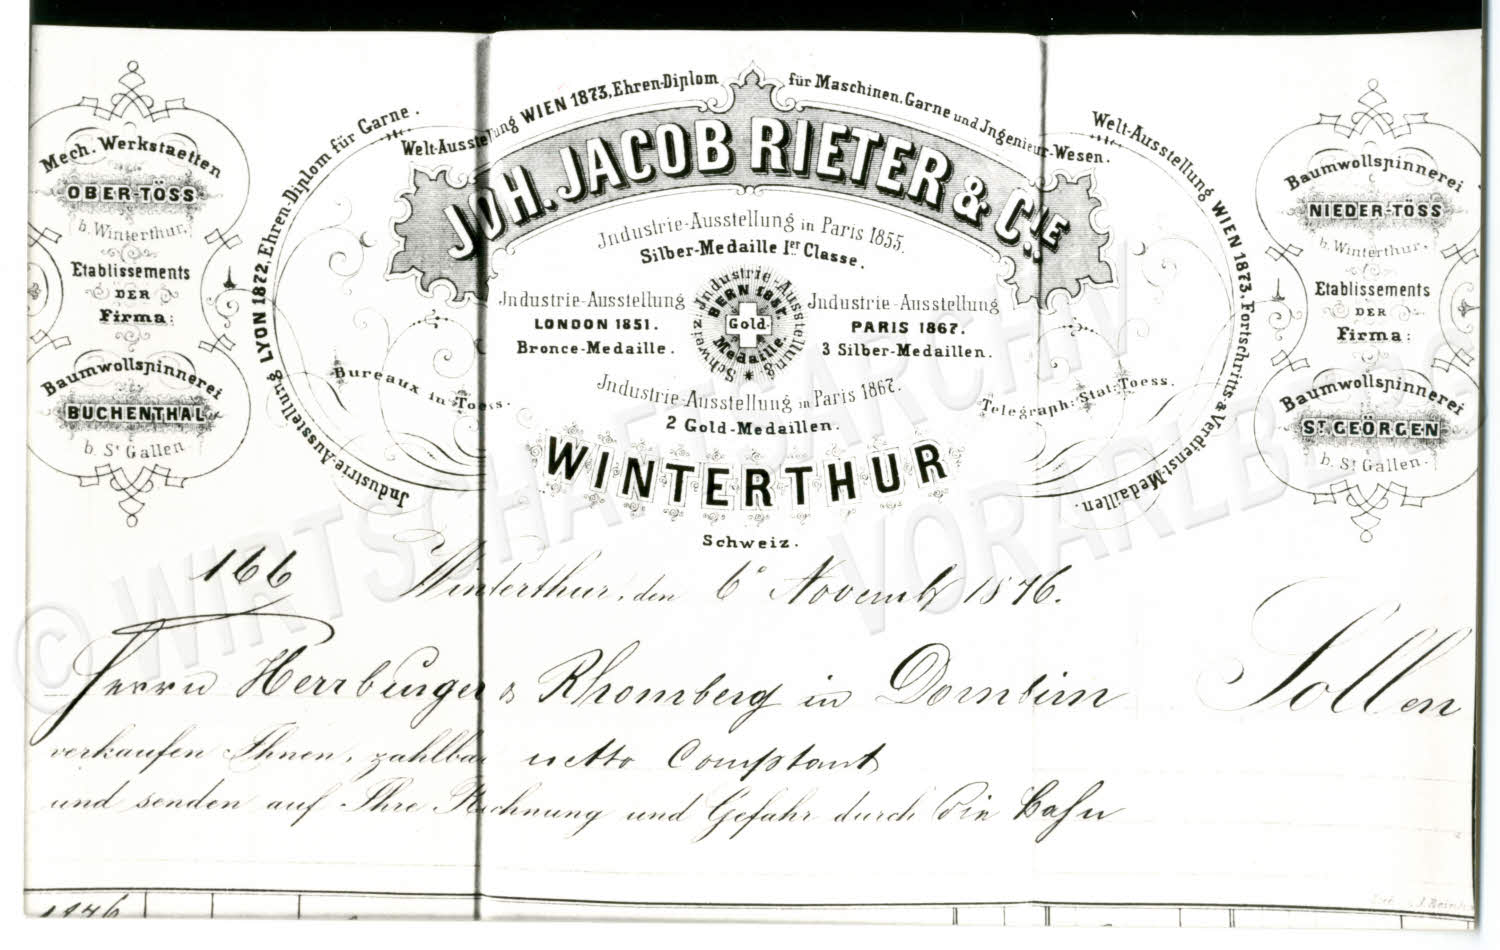 Mech. Werkstaetten
OBER-TÖSS
b. Winterthur.
Etablissements
DER
Firma:
Baumwollspinnerei
BUCHENTHAL
b. St Gallen.
Industrie-Ausstellung LYON 1872, Ehren-Diplom für Garne.
Welt-Ausstellung WIEN 1873, Ehren-Diplom für Maschinen, Garne und Ingenieur-Wesen.
Welt-Ausstellung WIEN 1873, Fortschritts- & Verdienst-Medaillen.
JOH. JACOB RIETER & CIE
Industrie-Ausstellung in Paris 1855.
Silber-Medaille Ier Classe.
Industrie-Ausstellung
LONDON 1851.
Bronce-Medaille.
Schweiz. Industrie-Ausstellung
BERN 1857.
Gold-
Medaille.
Industrie-Ausstellung
PARIS 1867.
3 Silber-Medaillen.
Industrie-Ausstellung in Paris 1867.
2 Gold-Medaillen.
Bureaux in Toess.
Telegraph: Stat: Toess.
WINTERTHUR
Schweiz.
Baumwollspinnerei
NIEDER-TÖSS
b. Winterthur.
Etablissements
DER
Firma:
Baumwollspinnerei
ST GEORGEN
b. St Gallen.
166 Winterthur, den 6 Novemb 1876.
Herrn Herrburger & Rhomberg in Dornbirn Sollen
verkaufen Ihnen, zahlbar netto Comptant
und senden auf Ihre Rechnung und Gefahr durch die Bahn
1876
© WIRTSCHAFTSARCHIV
VORARLBERG